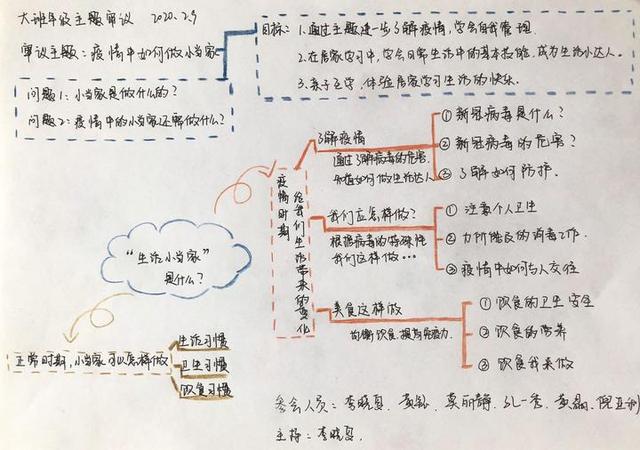 大班年级主题审议 2020.2.9
审议主题：疫情中如何做小当家
问题1：小当家是做什么的？
问题2：疫情中的小当家还能做什么？
目标：1.通过主题进一步了解疫情，学会自我管理.
2.在居家学习中，学会日常生活中的基本技能，成为生活小达人。
3.亲子互学，体验居家学习生活的快乐。
“生活小当家”
是什么？
疫情时期
给我们生活带来的变化
了解疫情
通过了解病毒的危害.
知道如何做生活达人
① 新冠病毒是什么？
② 新冠病毒的危害？
③ 了解如何防护.
我们应怎样做？
根据病毒的特殊性
我们这样做…
① 注意个人卫生
② 力所能及的消毒工作.
③ 疫情中如何与人交往
美食这样做
均衡饮食，提高免疫力.
① 饮食的卫生安全
② 饮食的营养
③ 饮食我来做
正常时期，小当家可以怎样做
生活习惯
卫生习惯
饮食习惯
参会人员：李晓夏. 黄 莫丽静. 孔一秀. 黄磊. 倪
主持：李晓夏.